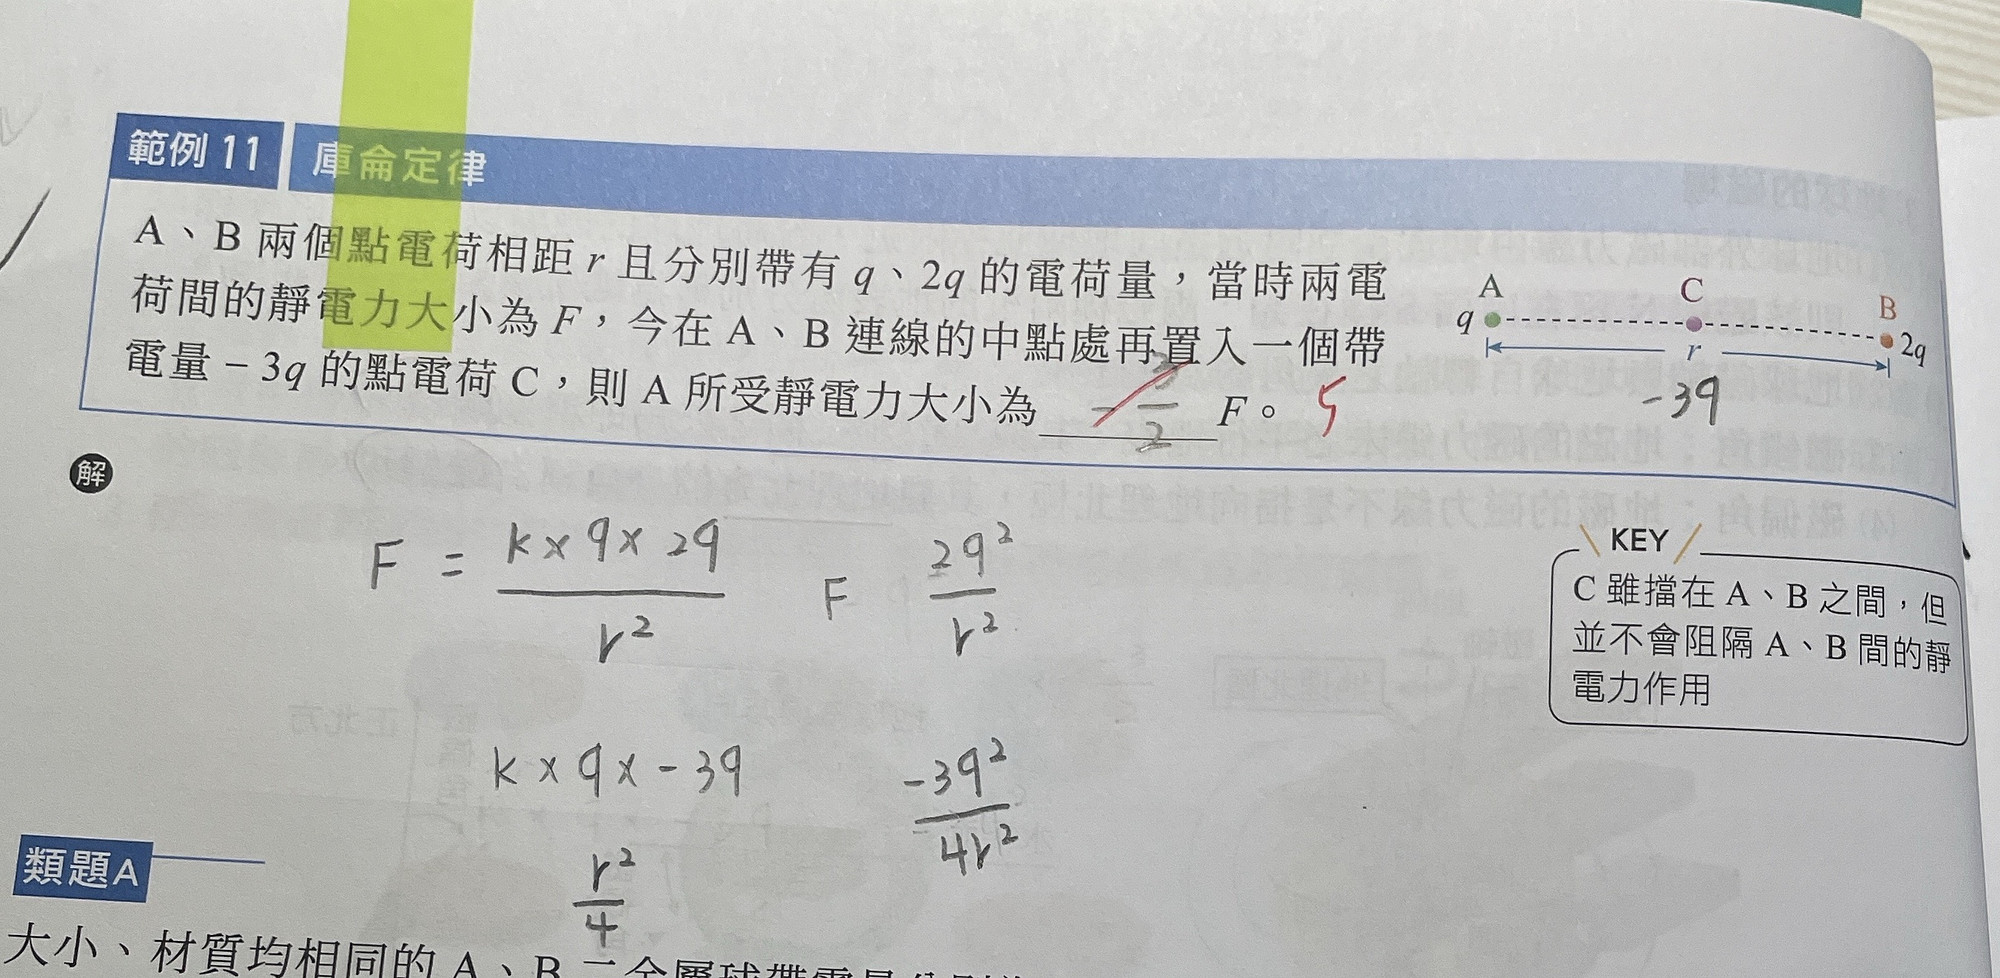 範例 11 庫侖定律
A、B 兩個點電荷相距 r 且分別帶有 q、2q 的電荷量，當時兩電
荷間的靜電力大小為 F，今在 A、B 連線的中點處再置入一個帶
電量 －3q 的點電荷 C，則 A 所受靜電力大小為 -3/2 F。 5
A C B
q 2q
r
-3q
解
F = k×q×2q / r² F 2q² / r²
KEY
C 雖擋在 A、B 之間，但
並不會阻隔 A、B 間的靜
電力作用
k×q×-3q / r²/4 -3q² / 4r²
類題A
大小、材質均相同的 A、B 二金屬球帶電量分別